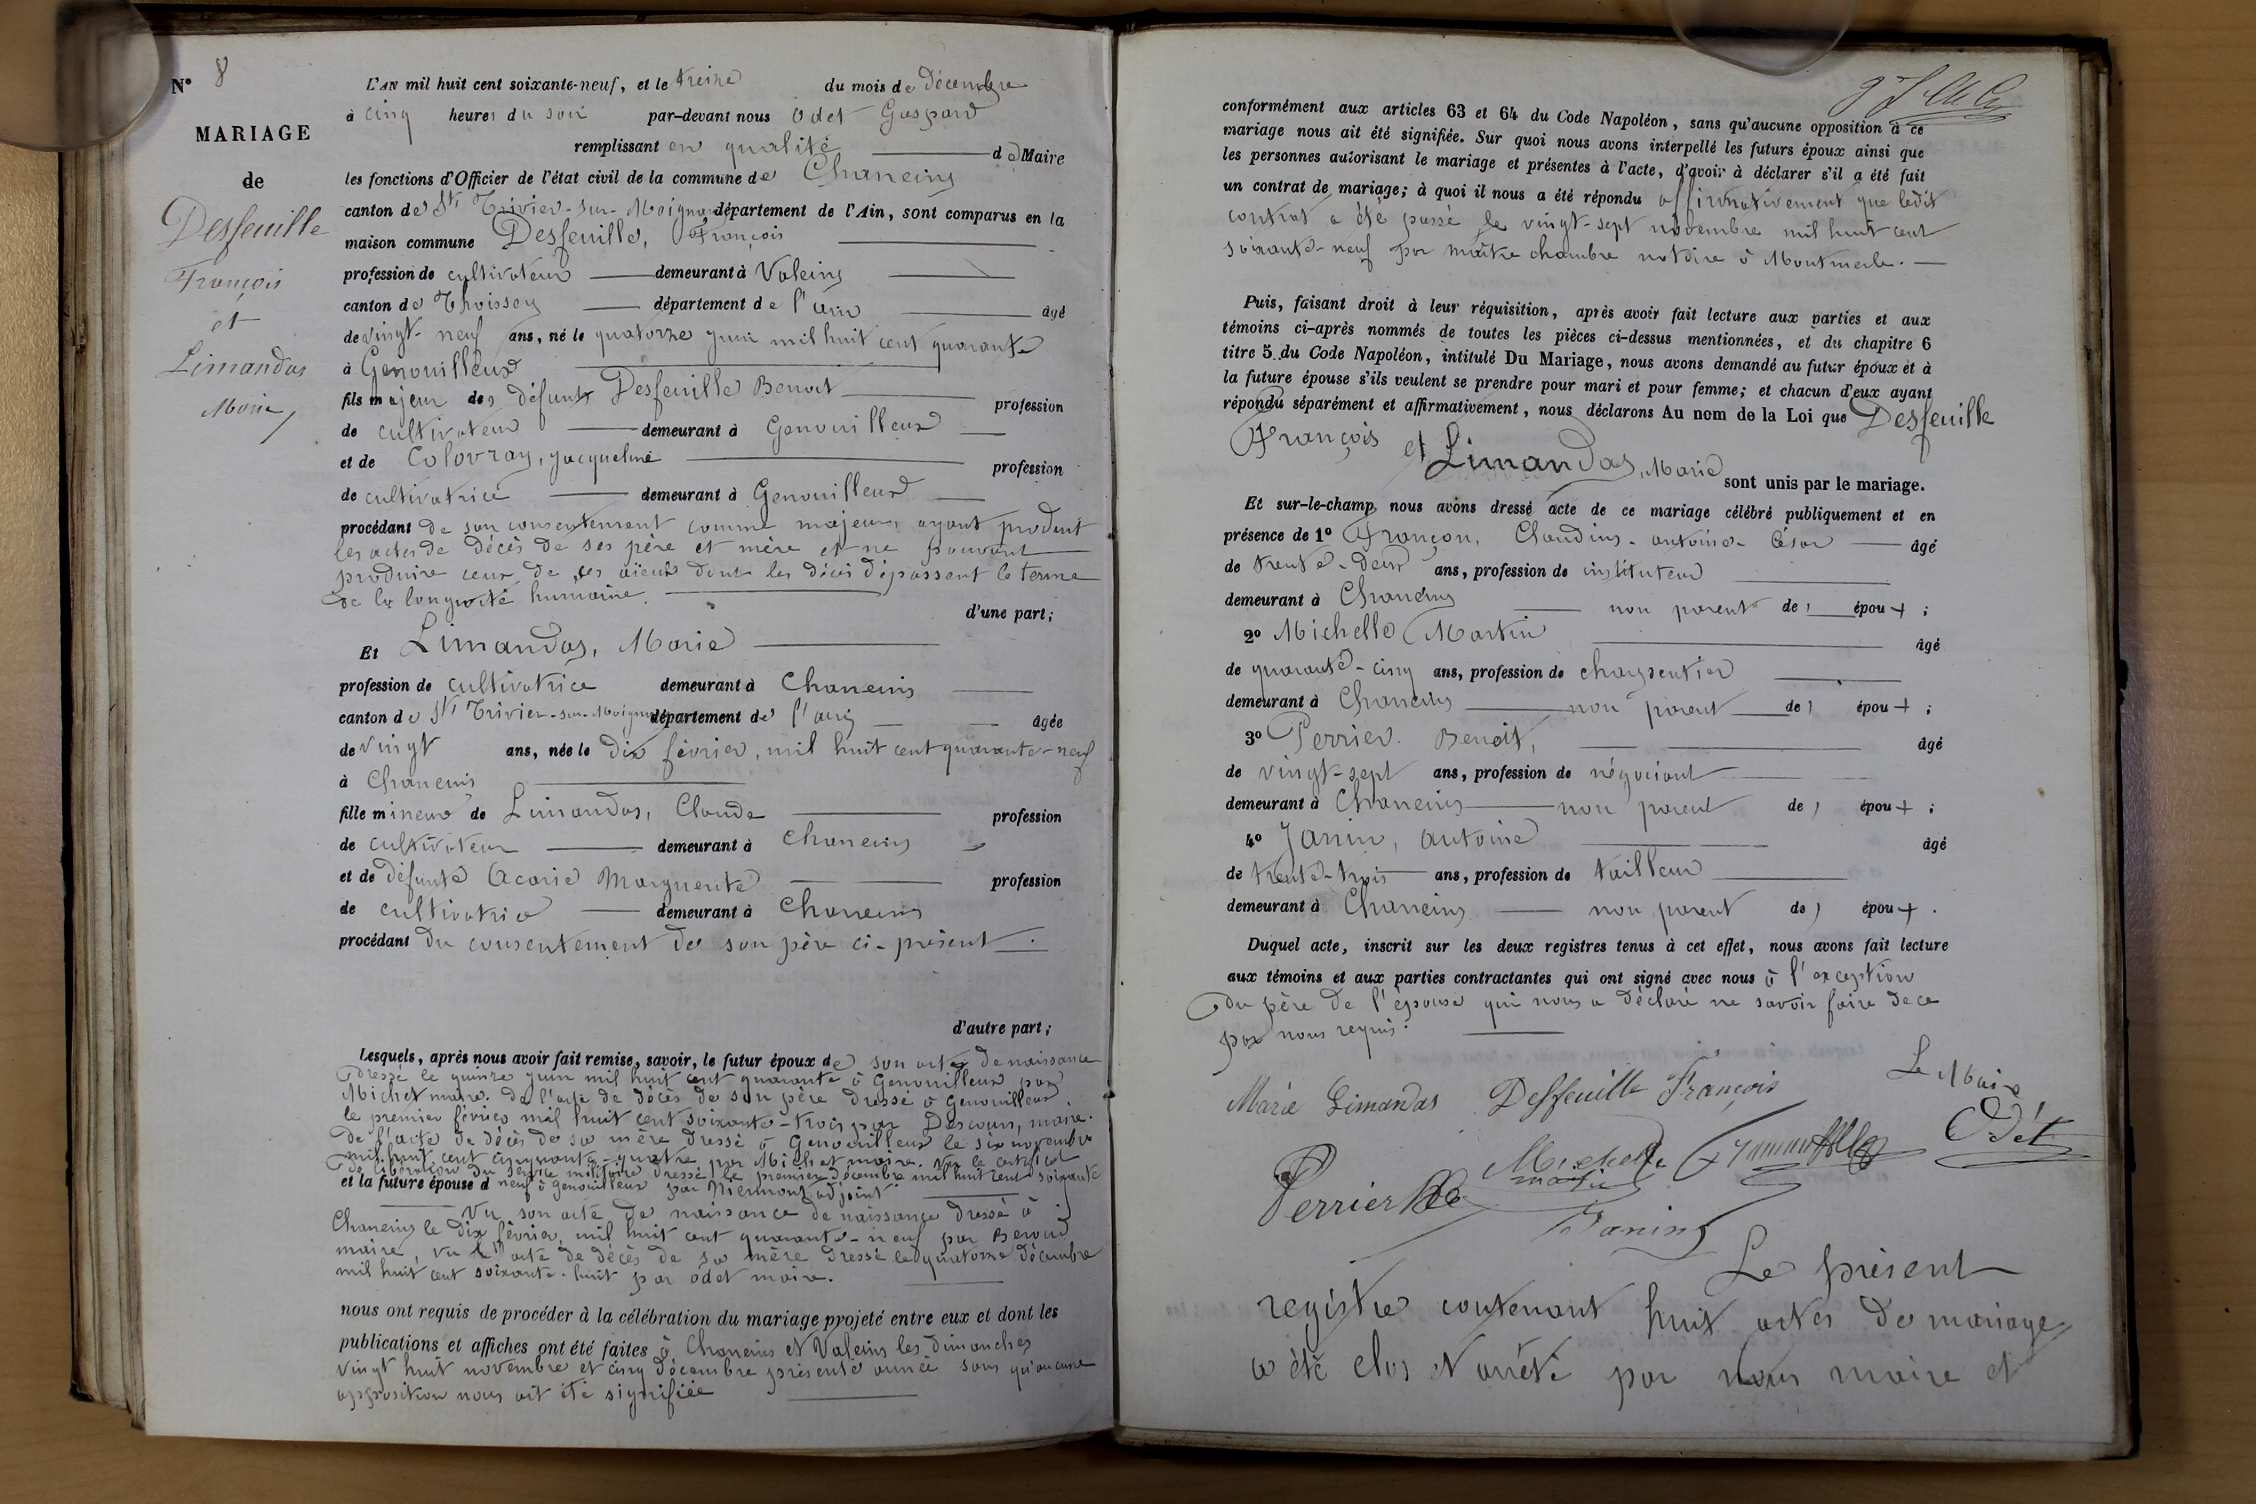 N° 8
MARIAGE
de
Desfeuille
François
et
Limandas
Marie
L'AN mil huit cent soixante-neuf, et le treize du mois de décembre
à cinq heures du soir par-devant nous Odet Gaspard
remplissant en qualité de Maire
les fonctions d'Officier de l'état civil de la commune de Chaneins
canton de St Trivier-sur-Moignans département de l'Ain, sont comparus en la
maison commune Desfeuille, François
profession de cultivateur demeurant à Valeins
canton de Thoissey département de l'ain âgé
de vingt-neuf ans, né le quatorze juin mil huit cent quarante
à Genouilleux
fils majeur des défunts Desfeuille Benoit profession
de cultivateur demeurant à Genouilleux
et de Colovray, jacqueline profession
de cultivatrice demeurant à Genouilleux
procédant de son consentement comme majeur, ayant produit
les actes de décès de ses père et mère et ne pouvant
produire ceux de ses aïeux dont les décès dépassent le terme
de la longévité humaine.
d'une part;
Et Limandas, Marie
profession de cultivatrice demeurant à Chaneins
canton de St Trivier-sur-Moignans département de l'ain âgée
de vingt ans, née le dix février, mil huit cent quarante-neuf
à Chaneins
fille mineure de Limandas, Claude profession
de cultivateur demeurant à Chaneins
et de défunte Acarie Marguerite profession
de cultivatrice demeurant à Chaneins
procédant du consentement de son père ci-présent.
d'autre part;
Lesquels, après nous avoir fait remise, savoir, le futur époux de son acte de naissance
dressé le quinze juin mil huit cent quarante à Genouilleux par
Michet maire. de l'acte de décès de son père dressé à Genouilleux
le premier février mil huit cent soixante-trois par Descours, maire.
de l'acte de décès de sa mère dressé à Genouilleux le six novembre
mil huit cent cinquante-quatre par Michet maire. Vu le certificat
de libération du service militaire dressé le premier décembre mil huit cent soixante
et la future épouse d neuf à Genouilleux par adjoint
Vu son acte de naissance de naissance dressé à
Chaneins le dix février, mil huit cent quarante-neuf par
maire, vu l'acte de décès de sa mère dressé le quatorze décembre
mil huit cent soixante-huit par odet maire.
nous ont requis de procéder à la célébration du mariage projeté entre eux et dont les
publications et affiches ont été faites à Chaneins et Valeins les dimanches
vingt huit novembre et cinq décembre présente année sans qu'aucune
opposition nous ait été signifiée
conformément aux articles 63 et 64 du Code Napoléon, sans qu'aucune opposition à ce
mariage nous ait été signifiée. Sur quoi nous avons interpellé les futurs époux ainsi que
les personnes autorisant le mariage et présentes à l'acte, d'avoir à déclarer s'il a été fait
un contrat de mariage; à quoi il nous a été répondu affirmativement que ledit
contrat a été passé le vingt-sept novembre mil huit cent
soixante-neuf par maître chambre notaire à Montmerle.
Puis, faisant droit à leur réquisition, après avoir fait lecture aux parties et aux
témoins ci-après nommés de toutes les pièces ci-dessus mentionnées, et du chapitre 6
titre 5 du Code Napoléon, intitulé Du Mariage, nous avons demandé au futur époux et à
la future épouse s'ils veulent se prendre pour mari et pour femme; et chacun d'eux ayant
répondu séparément et affirmativement, nous déclarons Au nom de la Loi que Desfeuille
François et Limandas, Marie
sont unis par le mariage.
Et sur-le-champ nous avons dressé acte de ce mariage célébré publiquement et en
présence de 1° Françon, Claudius-antoine-César âgé
de trente-deux ans, profession de instituteur
demeurant à Chaneins non parent de, épou+ ;
2° Michelle Martin âgé
de quarante-cinq ans, profession de charpentier
demeurant à Chaneins non parent de, épou+ ;
3° Perrier. Benoit, âgé
de vingt-sept ans, profession de négociant
demeurant à Chaneins non parent de, épou+ ;
4° Janin, antoine âgé
de trente-trois ans, profession de tailleur
demeurant à Chaneins non parent de, épou+ .
Duquel acte, inscrit sur les deux registres tenus à cet effet, nous avons fait lecture
aux témoins et aux parties contractantes qui ont signé avec nous à l'exception
du père de l'épouse qui nous a déclaré ne savoir faire de ce
par nous requis.
Le Maire
Marie Limandas Desfeuille François
Odet
Michelle
martin
Perrier
Janin
Le présent
registre contenant huit actes de mariage
a été clos et arrêté par nous maire et